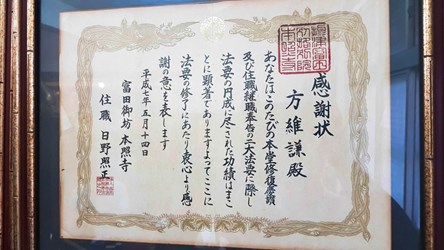 感謝状
方維謙殿
あなたはこのたびの本堂修復慶讃
及び住職継職奉告の二大法要に際し
法要の円成に尽された功績はまこ
とに顕著でありますよってここに
法要の修了にあたり衷心より感
謝の意を表します
平成七年五月十四日
富田御坊 本照寺
住職 日野照正